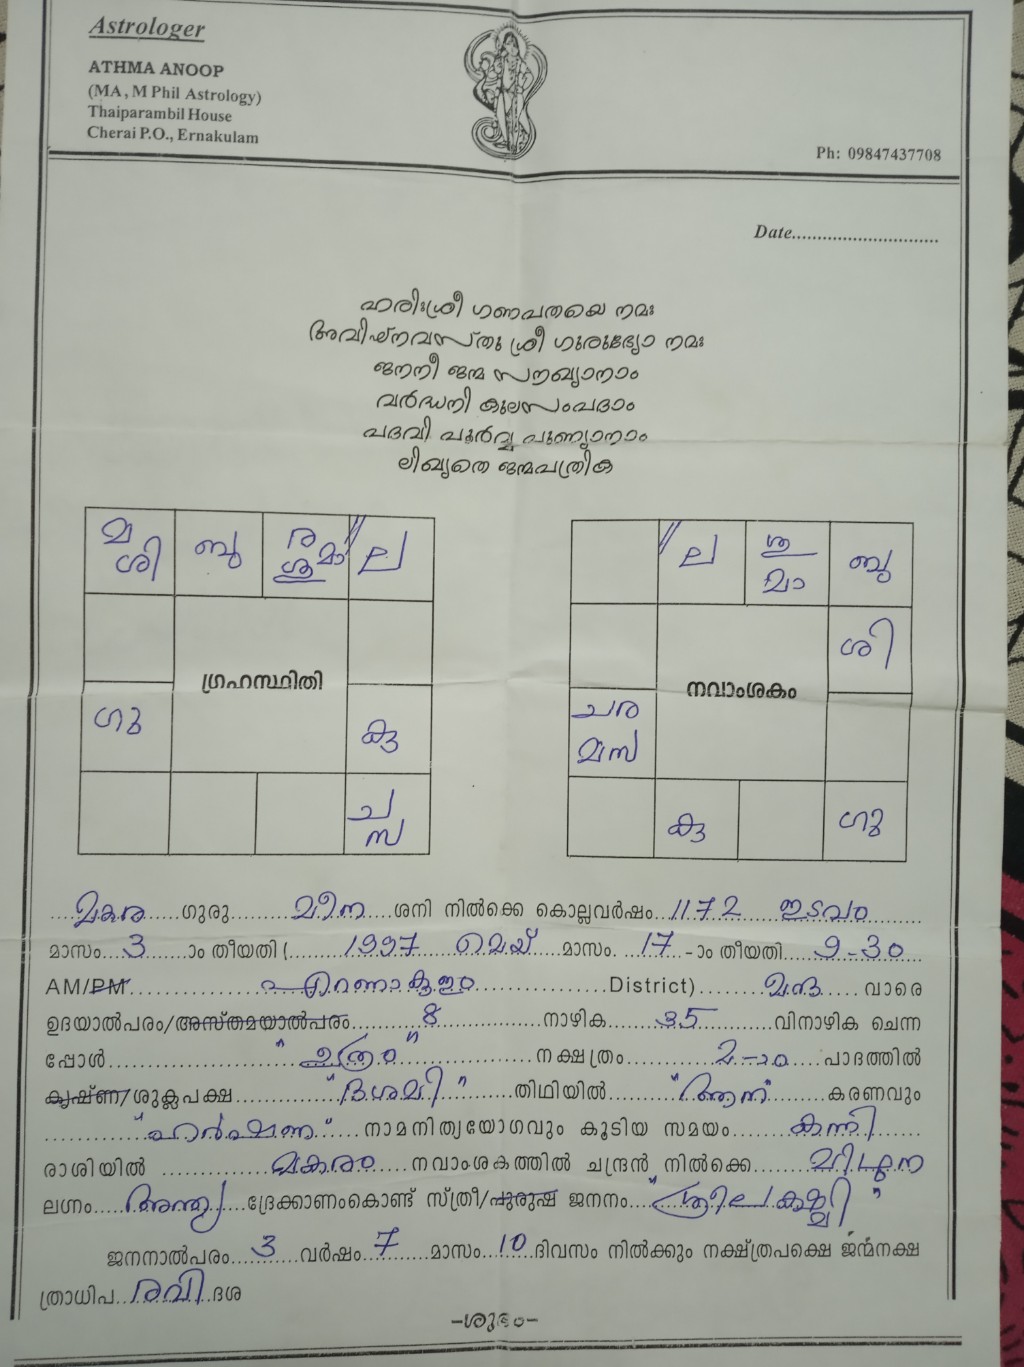 Astrologer
ATHMA ANOOP
(MA, M Phil Astrology)
Thaiparambil House
Cherai P.O., Ernakulam
Ph: 09847437708
Date............................
ഹരിഃശ്രീ ഗണപതയെ നമഃ
അവിഘ്നവസ്തു ശ്രീ ഗുരുഭ്യോ നമഃ
ജനനീ ജന്മ സൗഖ്യാനാം
വർദ്ധനി കുലസംപദാം
പദവി പൂർവ്വ പുണ്യാനാം
ലിഖ്യതെ ജന്മപത്രിക
മ ശി ബു ര ശു മാ ല
ഗ്രഹസ്ഥിതി
ഗു കു
ച
സ
ല ശു മാ ബു
ശി
നവാംശകം
ചര
മസ
കു ഗു
മകര ഗുരു മീന ശനി നിൽക്കെ കൊല്ലവർഷം 1172 ഇടവം
മാസം 3 ാം തീയതി ( 1997 മെയ് മാസം 17 -ാം തീയതി 9-30
AM/PM എറണാകുളം District) മന്ദ വാരെ
ഉദയാൽപരം/അസ്തമയാൽപരം 8 നാഴിക 35 വിനാഴിക ചെന്ന
പ്പോൾ നക്ഷത്രം 2-ാം പാദത്തിൽ
കൃഷ്ണ/ശുക്ലപക്ഷ "ദശമി" തിഥിയിൽ "ആന" കരണവും
"ഹർഷണ" നാമനിത്യയോഗവും കൂടിയ സമയം കന്നി
രാശിയിൽ മകരം നവാംശകത്തിൽ ചന്ദ്രൻ നിൽക്കെ മിഥുന
ലഗ്നം അന്ത്യ ദ്രേക്കാണംകൊണ്ട് സ്ത്രീ/പുരുഷ ജനനം "ശ്രീലകഷ്മി"
ജനനാൽപരം 3 വർഷം 7 മാസം 10 ദിവസം നിൽക്കും നക്ഷ്ത്രപക്ഷെ ജന്മനക്ഷ
ത്രാധിപ രവി ദശ
-ശുഭം-